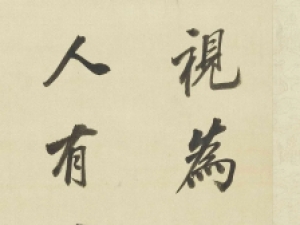 視為
人有